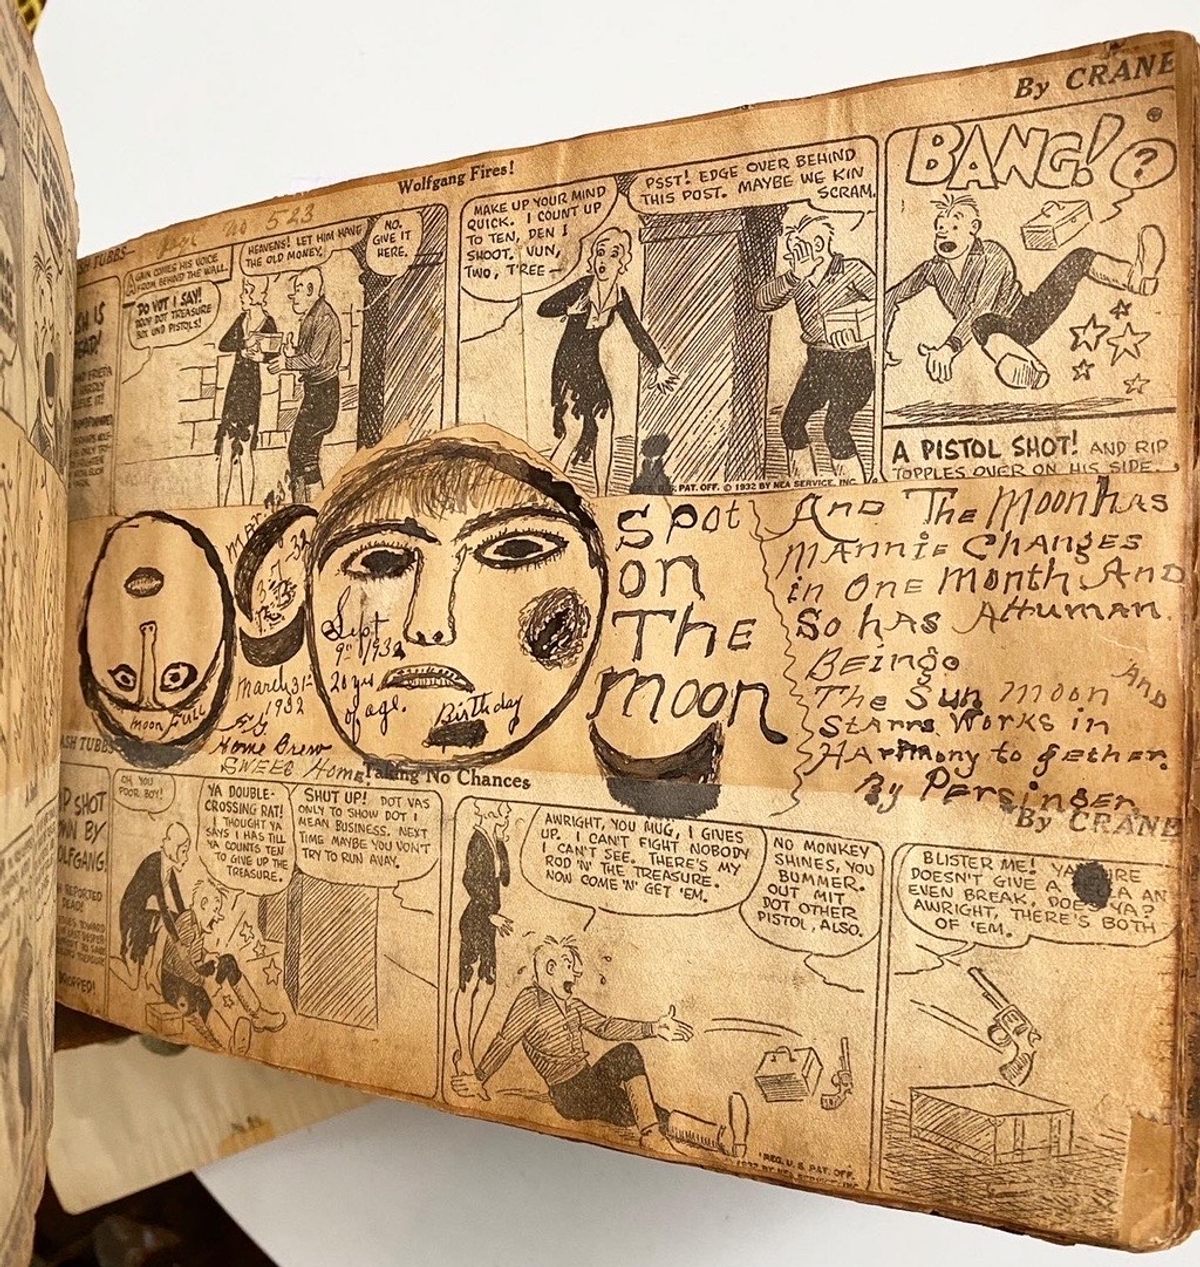 By CRANE
Wolfgang Fires!
page no 523
SH TUBBS—
AGAIN COMES HIS VOICE
FROM BEHIND THE WALL.
DO VOT I SAY!
DROP DOT TREASURE
BOX UND PISTOLS!
HEAVENS! LET HIM HAVE
THE OLD MONEY.
NO.
GIVE IT
HERE.
MAKE UP YOUR MIND
QUICK. I COUNT UP
TO TEN, DEN I
SHOOT. VUN,
TWO, T'REE—
PSST! EDGE OVER BEHIND
THIS POST. MAYBE WE KIN
SCRAM.
BANG!
?
. PAT. OFF. © 1932 BY NEA SERVICE, INC.
A PISTOL SHOT! AND RIP
TOPPLES OVER ON HIS SIDE.
Moon Full
March 31-
1932
Home Brew
SWEEt Home.
Sept
9th 1932
20 yrs
of age.
Birthday
Spot
on
The
Moon
And The Moon has
MAnniE ChAngEs
in OnE Month And
So hAs AHuman.
BEingo
And
The Sun moon
StARRs WoRKs in
HARMony to gEthER.
By PERsingER
ASH TUBBS
Taking No Chances
By CRANE
P SHOT
WN BY
OLFGANG!
OH, YOU
POOR BOY!
YA DOUBLE-
CROSSING RAT!
I THOUGHT YA
SAYS I HAS TILL
YA COUNTS TEN
TO GIVE UP THE
TREASURE.
SHUT UP! DOT VAS
ONLY TO SHOW DOT I
MEAN BUSINESS. NEXT
TIME MAYBE YOU VON'T
TRY TO RUN AVAY.
AWRIGHT, YOU MUG, I GIVES
UP. I CAN'T FIGHT NOBODY
I CAN'T SEE. THERE'S MY
ROD 'N' THE TREASURE.
NOW COME 'N' GET 'EM.
NO MONKEY
SHINES, YOU
BUMMER.
OUT MIT
DOT OTHER
PISTOL, ALSO.
BLISTER ME! YA URE
DOESN'T GIVE A A AN
EVEN BREAK, DOES YA?
AWRIGHT, THERE'S BOTH
OF 'EM.
REG. U. S. PAT. OFF.
1932 BY NEA SERVICE, INC.